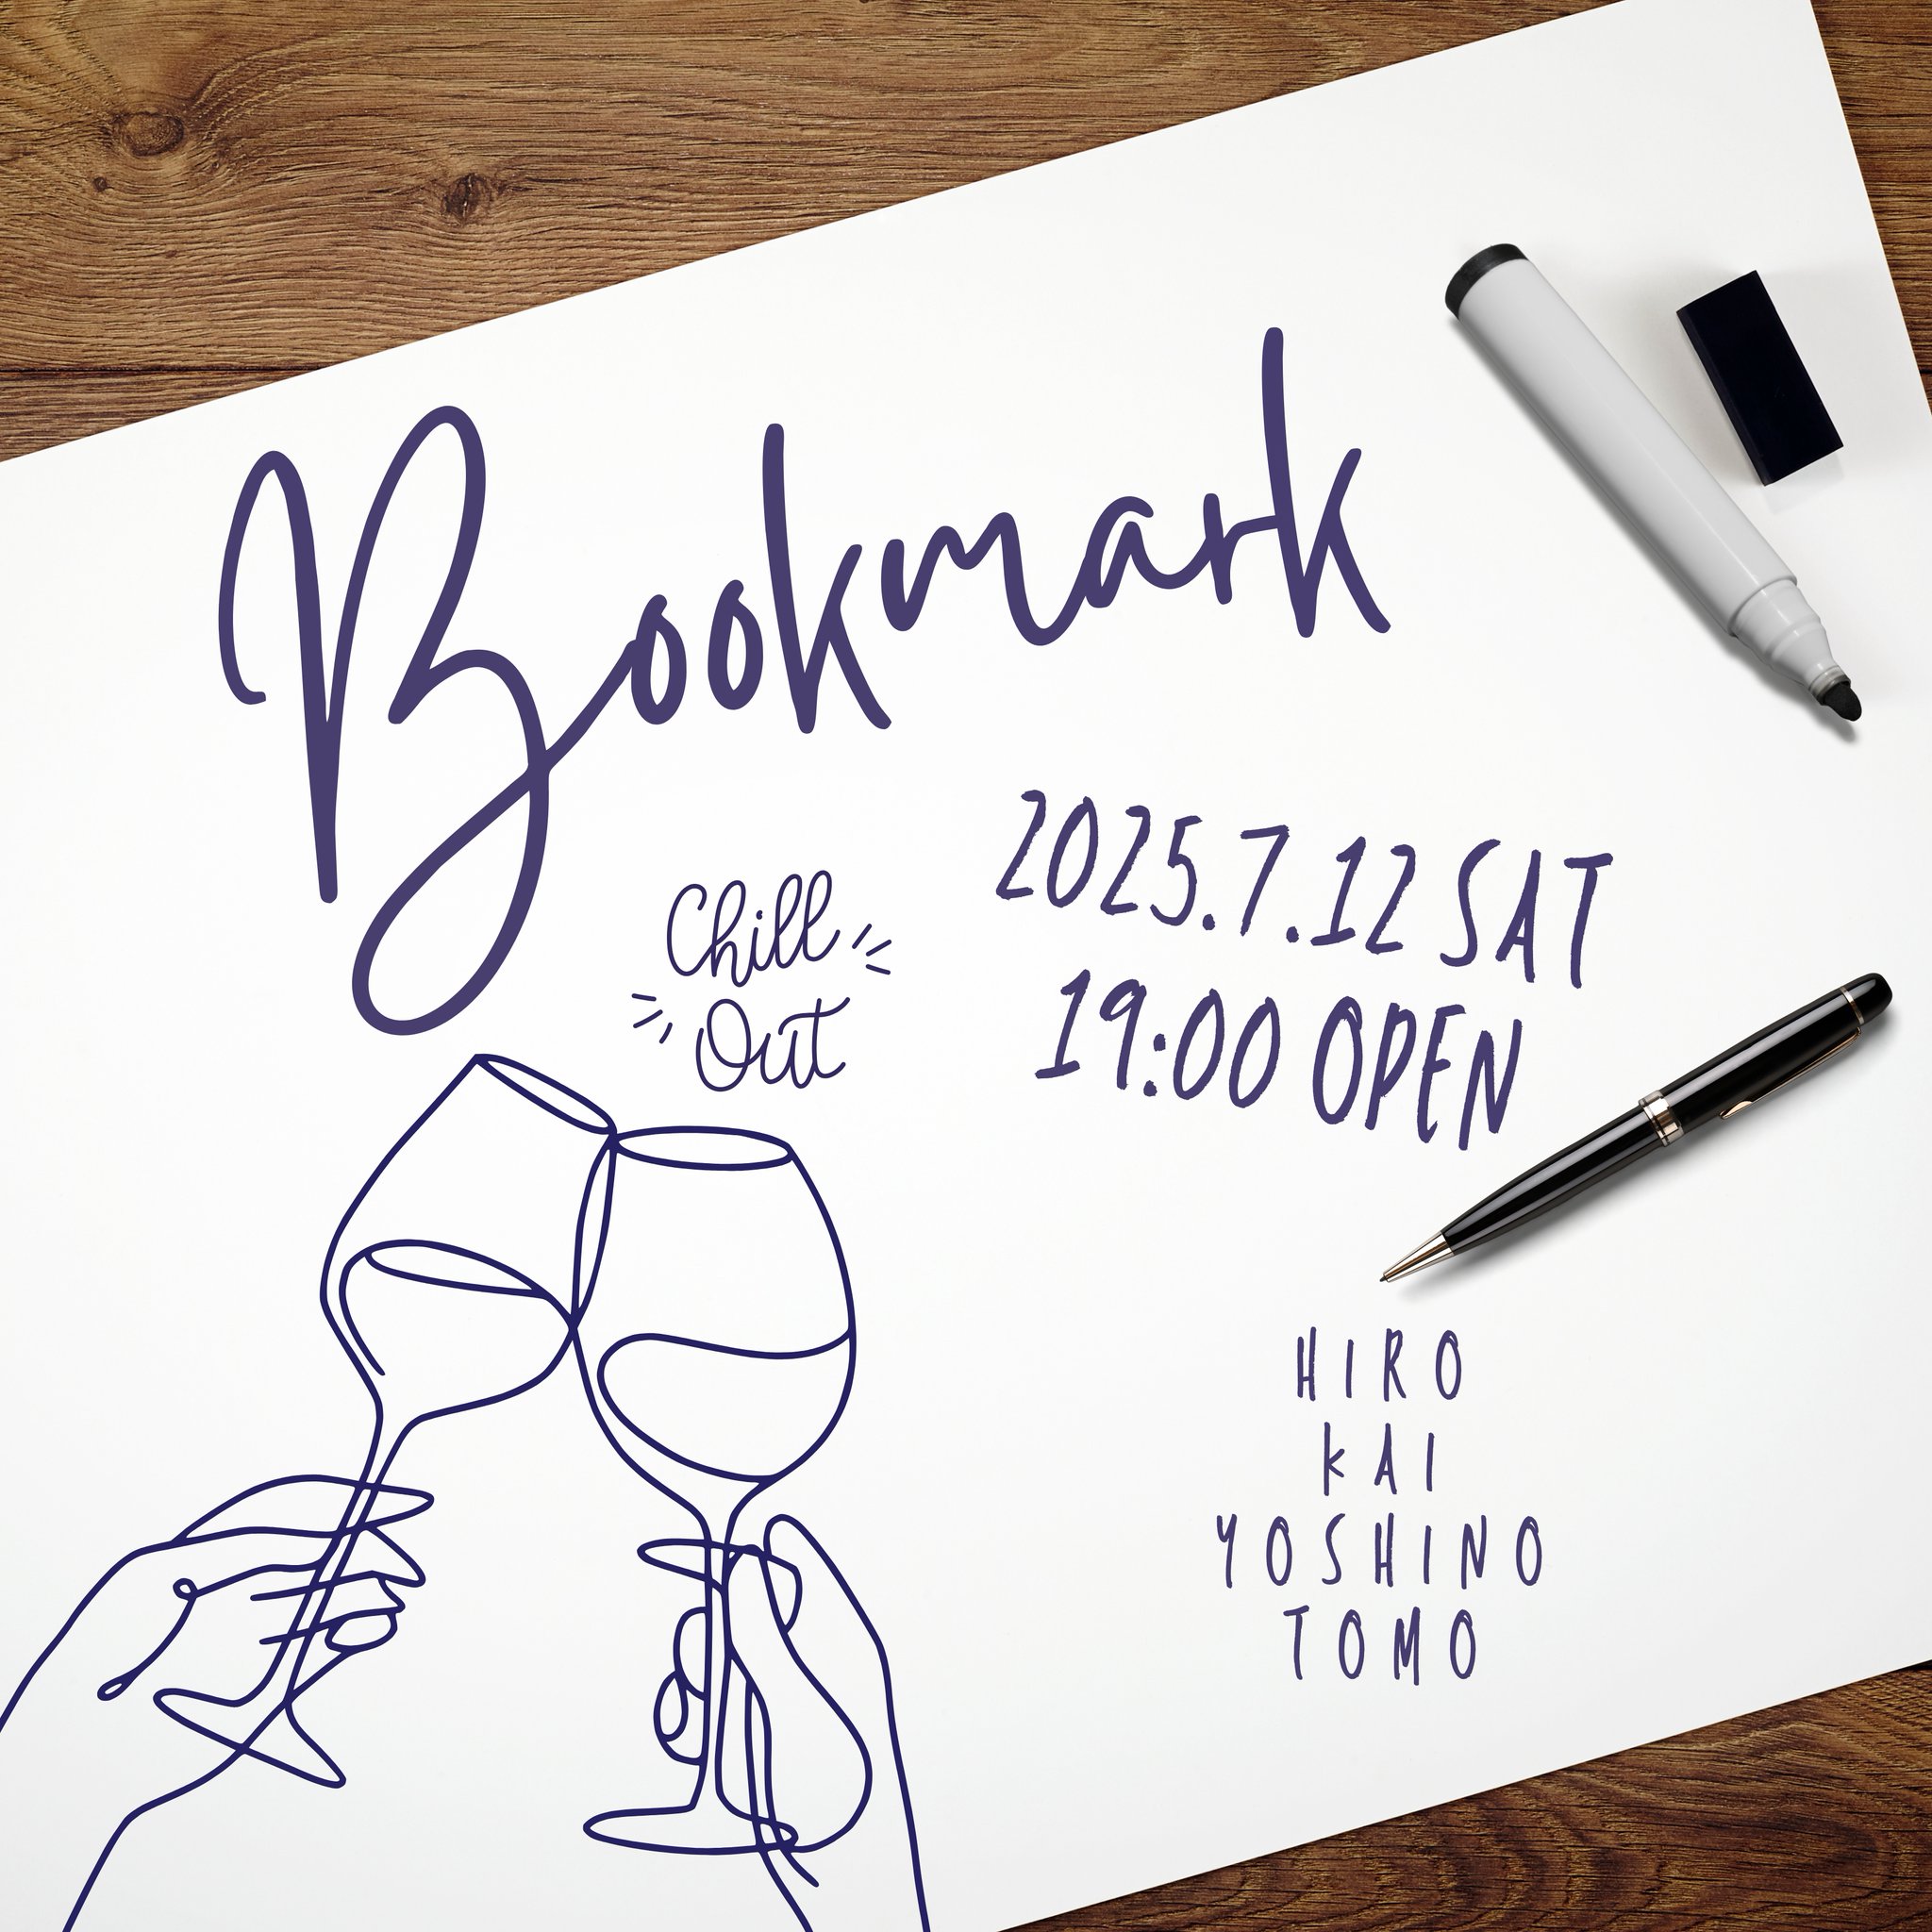 Bookmark
2025.7.12 SAT
19:00 OPEN
Chill
Out
HIRO
KAI
YOSHINO
TOMO